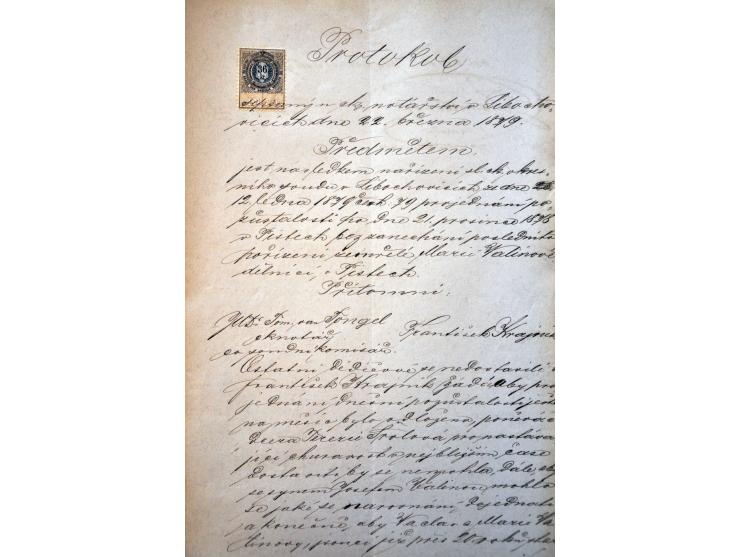 Protokol
36
sepsaný v ck. notářství v Libocho-
vicích dne 22. března 1879.
Předmětem
jest následkem nařízení sl. ck. okres-
ního soudu v Libochovicích ze dne
12. ledna 1879 79 projednání po-
zůstalosti po, dne 21. prosince 1878
v Pistech bez zanechání posledního
pořízení zemřelé, Marii Valinové
dělnici, v Pistech.
Přítomni:
JUDr. Tom. van Töngel
cknotář František Krajník
co soudní komisař.
Ostatní dědicové se nedostavili a
František Krajník žádá, aby pro-
jednání dnešní pozůstalosti ještě
na měsíc bylo odloženo, poněvadž
dcera Terezie Trolová pro nastáva-
jící churavost v nejbližším čase
dostaviti by se nemohla, dále, aby
se synem Josefem Valinou mohla
se jaké se narovnání, vyjednati
a konečně, aby Václav a Marie Va-
linovy, jenž již přes 20 roků